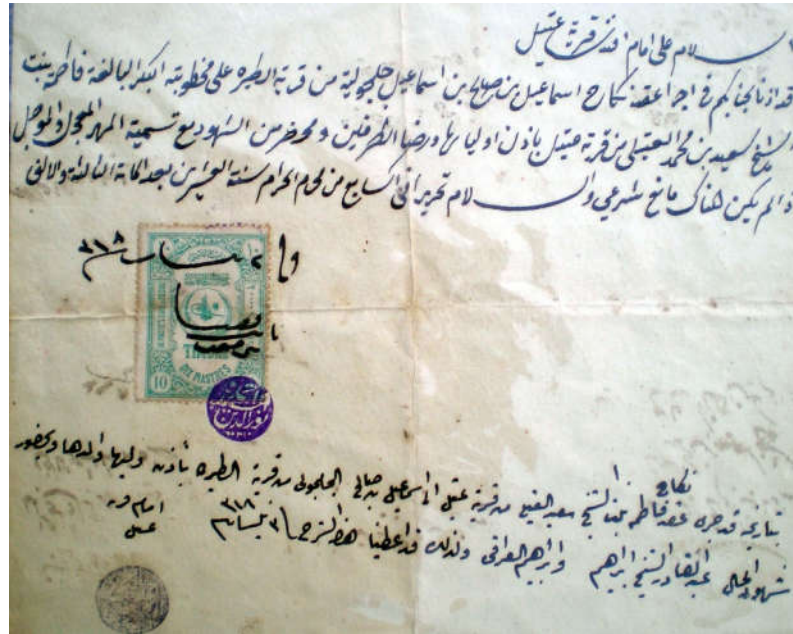 سلام على امام افندي قرية عتيل
قد اذنا لجنابكم في اجرا عقد نكاح اسماعيل بن صالح بن اسماعيل جلجولية من قرية الطيره على مخطوبته البكر البالغة فاطمة بنت
الشيخ سعيد بن محمد العتيلي من قرية عتيل باذن اوليائها ورضا الطرفين ومحضر من الشهود مع تسمية المهر المعجل والمؤجل
اذا لم يكن هناك مانع شرعي والسلام تحريرا في السابع من محرم الحرام سنة العشرين بعد المائة الثالثة والالف
في نيسان ٣١٨
١٠
TIMBRE
DIX PIASTRES
10
نكاح
بتاريخه قد جرى عقد فاطمه بنت الشيخ سعيد من قرية عتيل الى اسمعيل بن صالح الجلجولي من قرية الطيره باذن وليها والدها وبحضور
شهود الحال عبد القادر الشيخ ابراهيم وابراهيم العراقي ولذلك قد اعطينا هذا الشرح في نيسان ٣١٨
امام قرية
عتيل